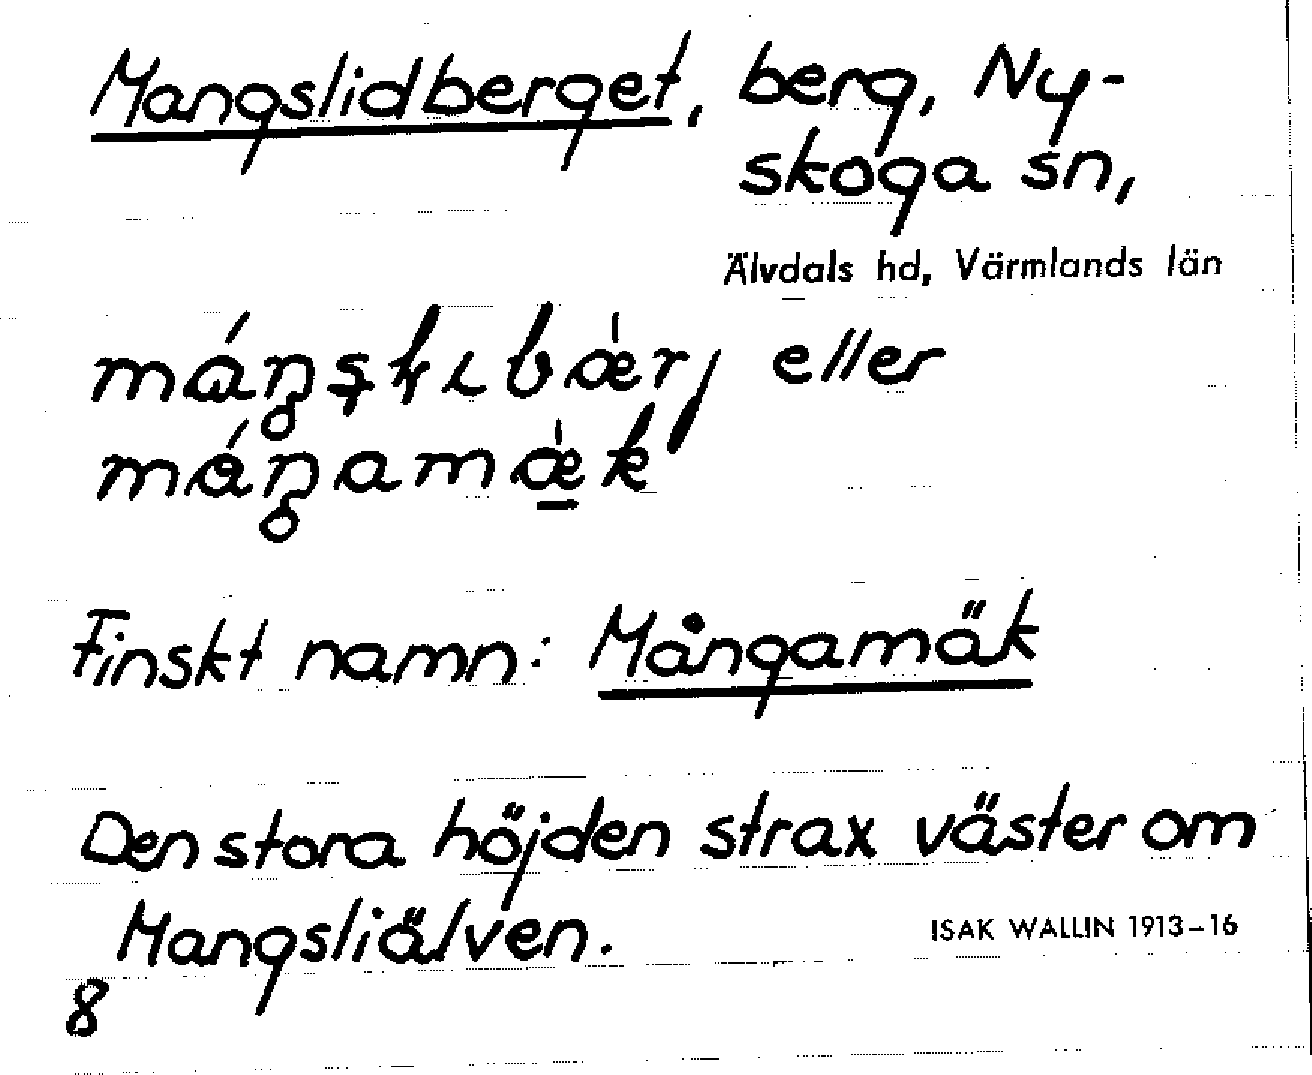 Mangslidberget, berg, Ny-
skoga sn,
Älvdals hd, Värmlands län
eller
Finskt namn: Mångamäk
Den stora höjden strax väster om
Mangsliälven.
ISAK WALLIN 1913–16
8